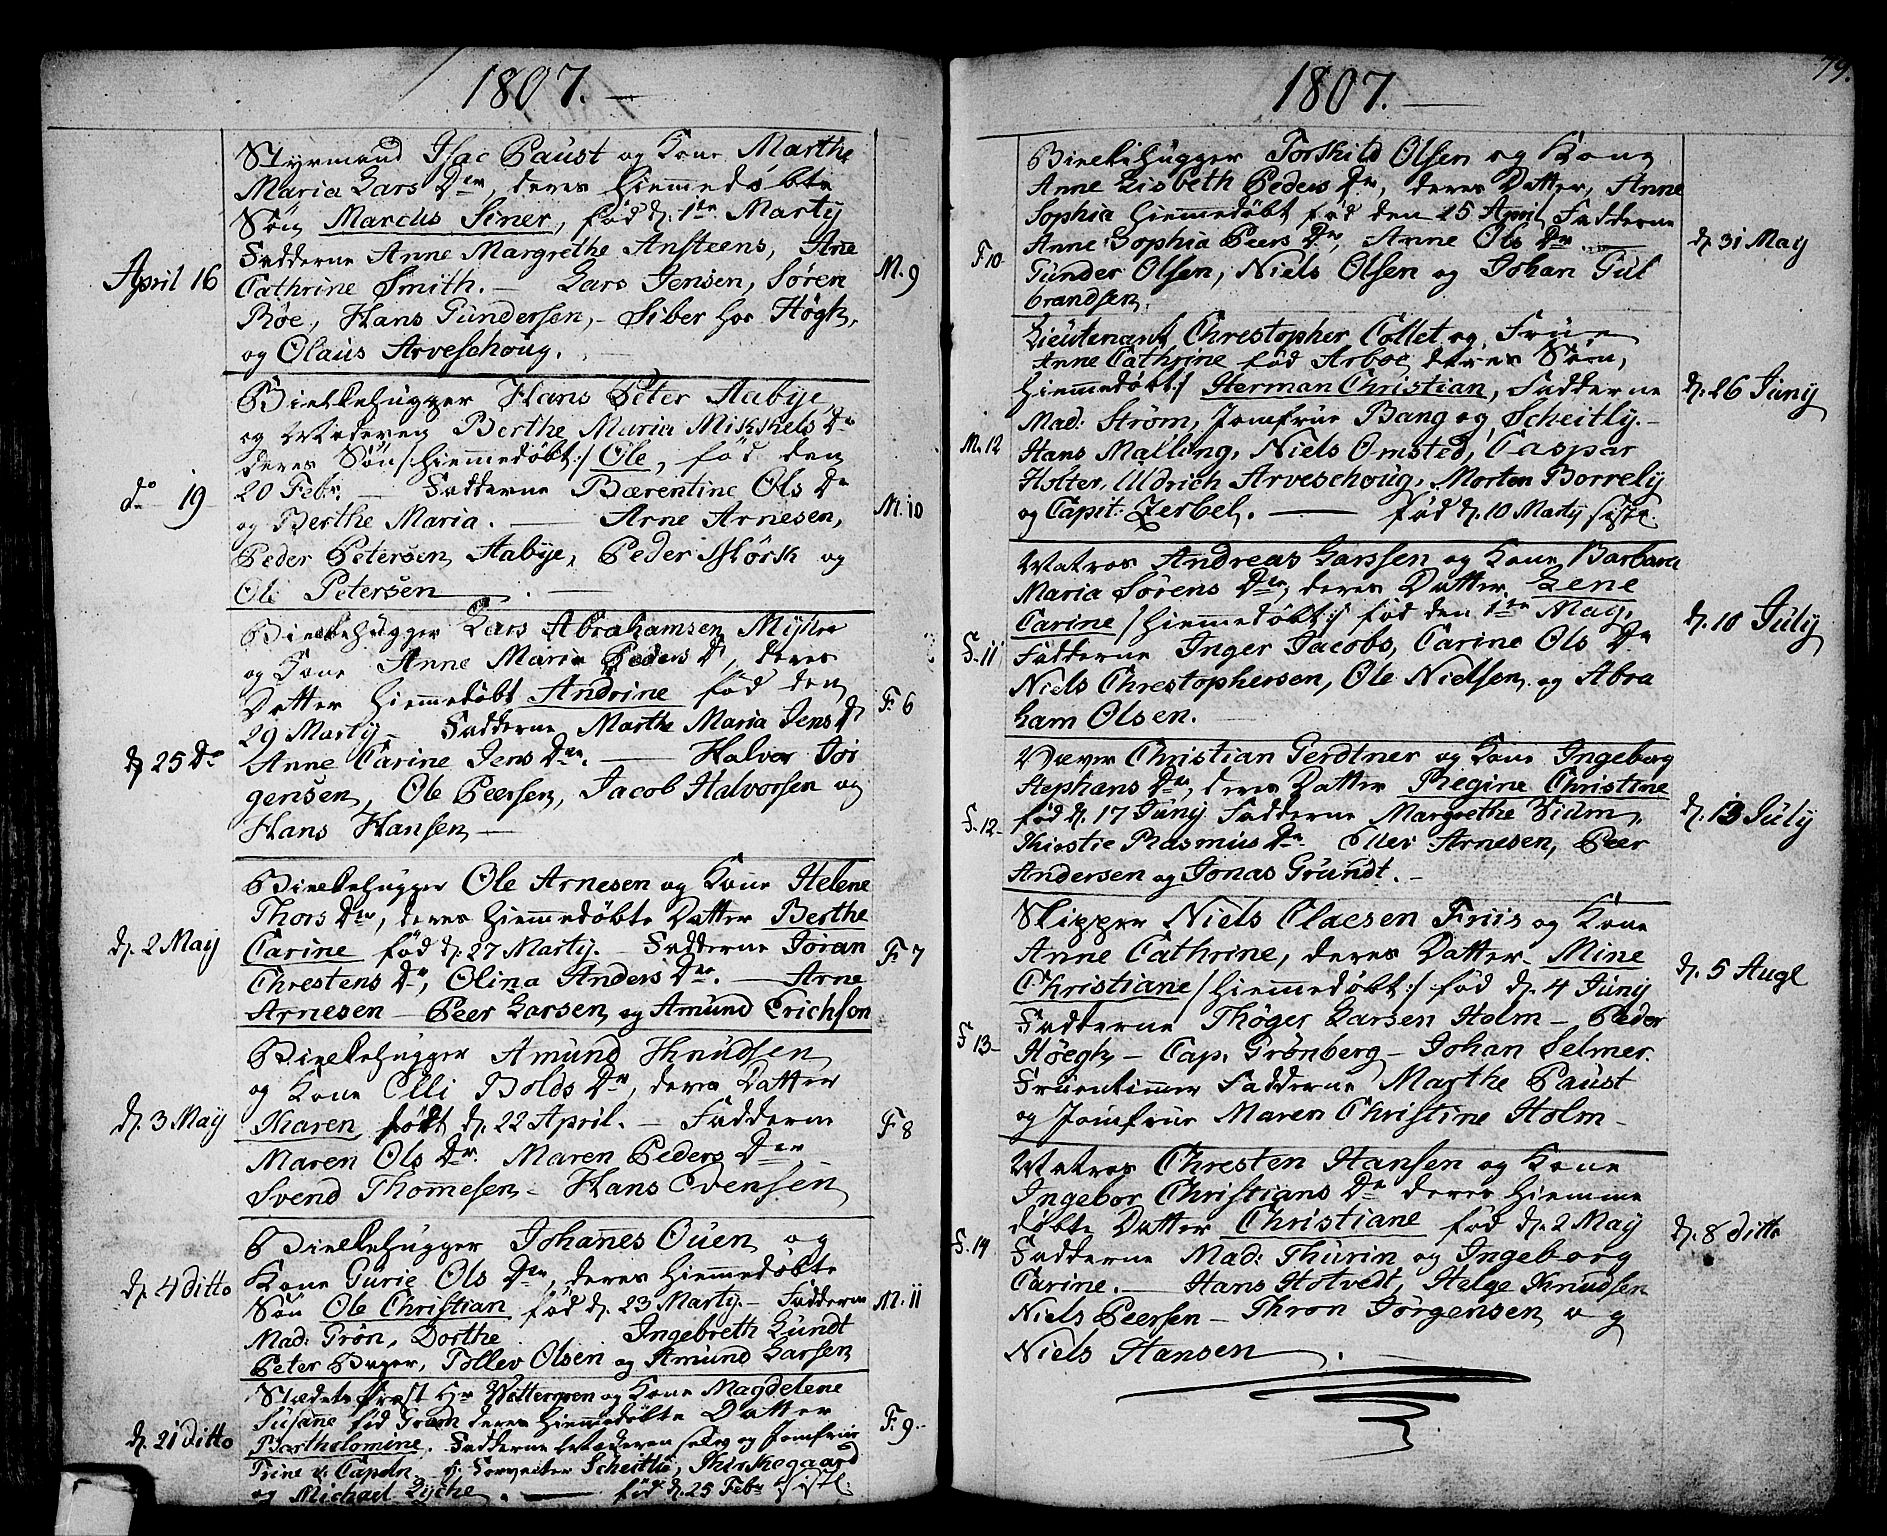 1807.
April 16
Styrmand Isac Paust og Kone Marthe
Maria Lars Dtr, deres hiemmedøbte
Søn Marcus Siner, fød d. 1te Marty
Fadderne Anne Margrethe Ansteens, Ane
Cathrine Smith. — Lars Jensen, Søren
Røe, Hans Gundersen, - Siber hos Høgh,
og Olaus Arveschoug.
M. 9
do 19
Bielkehugger Hans Peter Aabye,
og Berthe Maria Mikkels Dr
deres Søn /: hiemmedøbt :/ Ole, fød den
20 Febr. — Fadderne Bærentine Ols Dr
og Berthe Maria. — Arne Arnesen,
Peder Petersen Aabye, Peder Mørk og
Ole Petersen
M. 10
d. 25 Do
Bielkehugger Lars Abrahamsen Myhre
og Kone Anne Maria Peders D, deres
Datter hiemmedøbt Andrine fød den
29 Marty - Fadderne Marthe Maria Jens D
Anne Carine Jens Dtr. — Halvor Jör
gensen, Ole Peersen, Jacob Halvorsen og
Hans Hansen —
F. 6
d. 2 May
Bielkehugger Ole Arnesen og Kone Helene
Thors Dtr, deres hiemmedøbte Datter Berthe
Carine fød d. 27 Marty. Fadderne Jöran
Chrestens Dr, Olina Anders Dtr. — Arne
Arnesen — Peer Larsen og Amund Erichson
F 7
d. 3 May
Bielkehugger Amund Knudsen
og Kone Elli Bolds Dr, deres Datter
Karen født d. 22 April. — Fadderne
Maren Ols Dr. Maren Peders Dtr,
Svend Thomesen - Hans Evensen
F 8
d. 4 ditto
Bielkehugger Johanes Ouen og
Kone Gurie Ols Dtr, deres hiemmedøbte
Søn Ole Christian fød d. 23 Marty. - Fadderne
Mad: Grøn, Dorthe Ingebreth Lundt
Peter Bager, Tollev Olsen og Amund Larsen
M. 11
d. 21 ditto
Stædets Præst Hr Wettergreen og Kone Magdelene
Susane fød Gram deres hiemmedøbte Datter
Bartholomine. Fadderne Moderen selv og Jomfrue
Trine v. Capeln. Scheitlie, Kirkegaard
og Michael Lyche. — fød d. 25 Febr sistl.
F. 9
1807.
79.
F 10
Bielkehugger Torkild Olsen og Kone
Anne Lisbeth Peders Dr, deres Datter, Anne
Sophia hiemmedøbt fød den 25 April Fadderne
Anne Sophia Peers Dtr, Anne Ols Dr
Gunder Olsen, Niels Olsen og Johan Gul
brandsen.
d. 31 May
M. 12
Lieutenant Chrestopher Collet og Frue
Anne Cathrine fød Arboe deres Søn,
hiemmedøbt :/ Herman Christian, Fadderne
Mad: Strøm, Jomfrue Bang og Scheitly. -
Hans Malling, Niels Omsted, Caspar
Holter, Uldrich Arveschoug, Morten Borrely
og Capit: Zerbel. — fød d. 10 Marty sistl.
d. 26 Juny
F. 11
Matros Andreas Larssen og Kone Barbara
Maria Sørens Dtr, deres Datter Lene
Carine /: hiemmedøbt :/ fød den 1te May.
Fadderne Inger Jacobs, Carine Ols Dr
Niels Chrestophersen, Ole Nielsen og Abra
ham Olsen.
d. 10 July
F. 12
Væver Christian Gerdtner og Kone Ingeborg
Stephans Dtr, deres Datter Regine Christine
fød d. 17 Juny Fadderne Margrethe Vidm,
Kirstie Rasmus Dr. Ellev Arnesen, Peer
Andersen og Jonas Grundt. -
d. 13 July
F 13
Skipper Niels Claesen Friis og Kone
Anne Cathrine, deres Datter Mine
Christiane /: hiemmedøbt :/ fød d. 4 Juny
Fadderne Thøger Larsen Holm — Peder
Høegh — Cap. Grønberg — Johan Selmer.
Fruentimmer Fadderne Marthe Paust
og Jomfrue Maren Christine Holm -
d. 5 Augt
F. 14
Matros Chresten Hansen og Kone
Ingebor Christians Dr deres hiemme
døbte Datter Christiane fød d. 2 May
Fadderne Mad: Thurin og Ingeborg
Carine. — Hans Hotvedt, Helge Knudsen
Niels Peersen — Thron Jörgensen og
Niels Hansen
d. 8 ditto